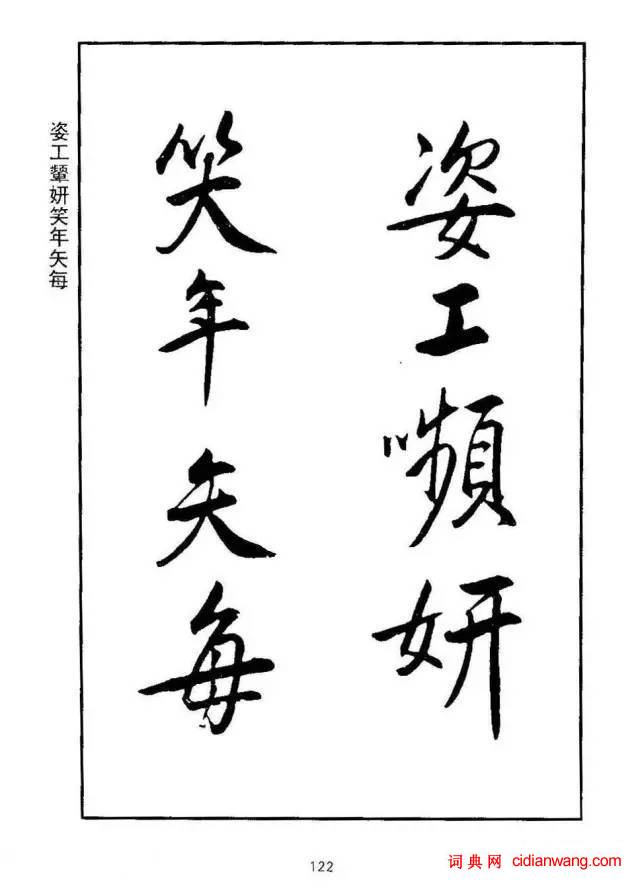 姿工嚬妍
笑年矢每
姿工颦妍笑年矢每
122
词典网 cidianwang.com